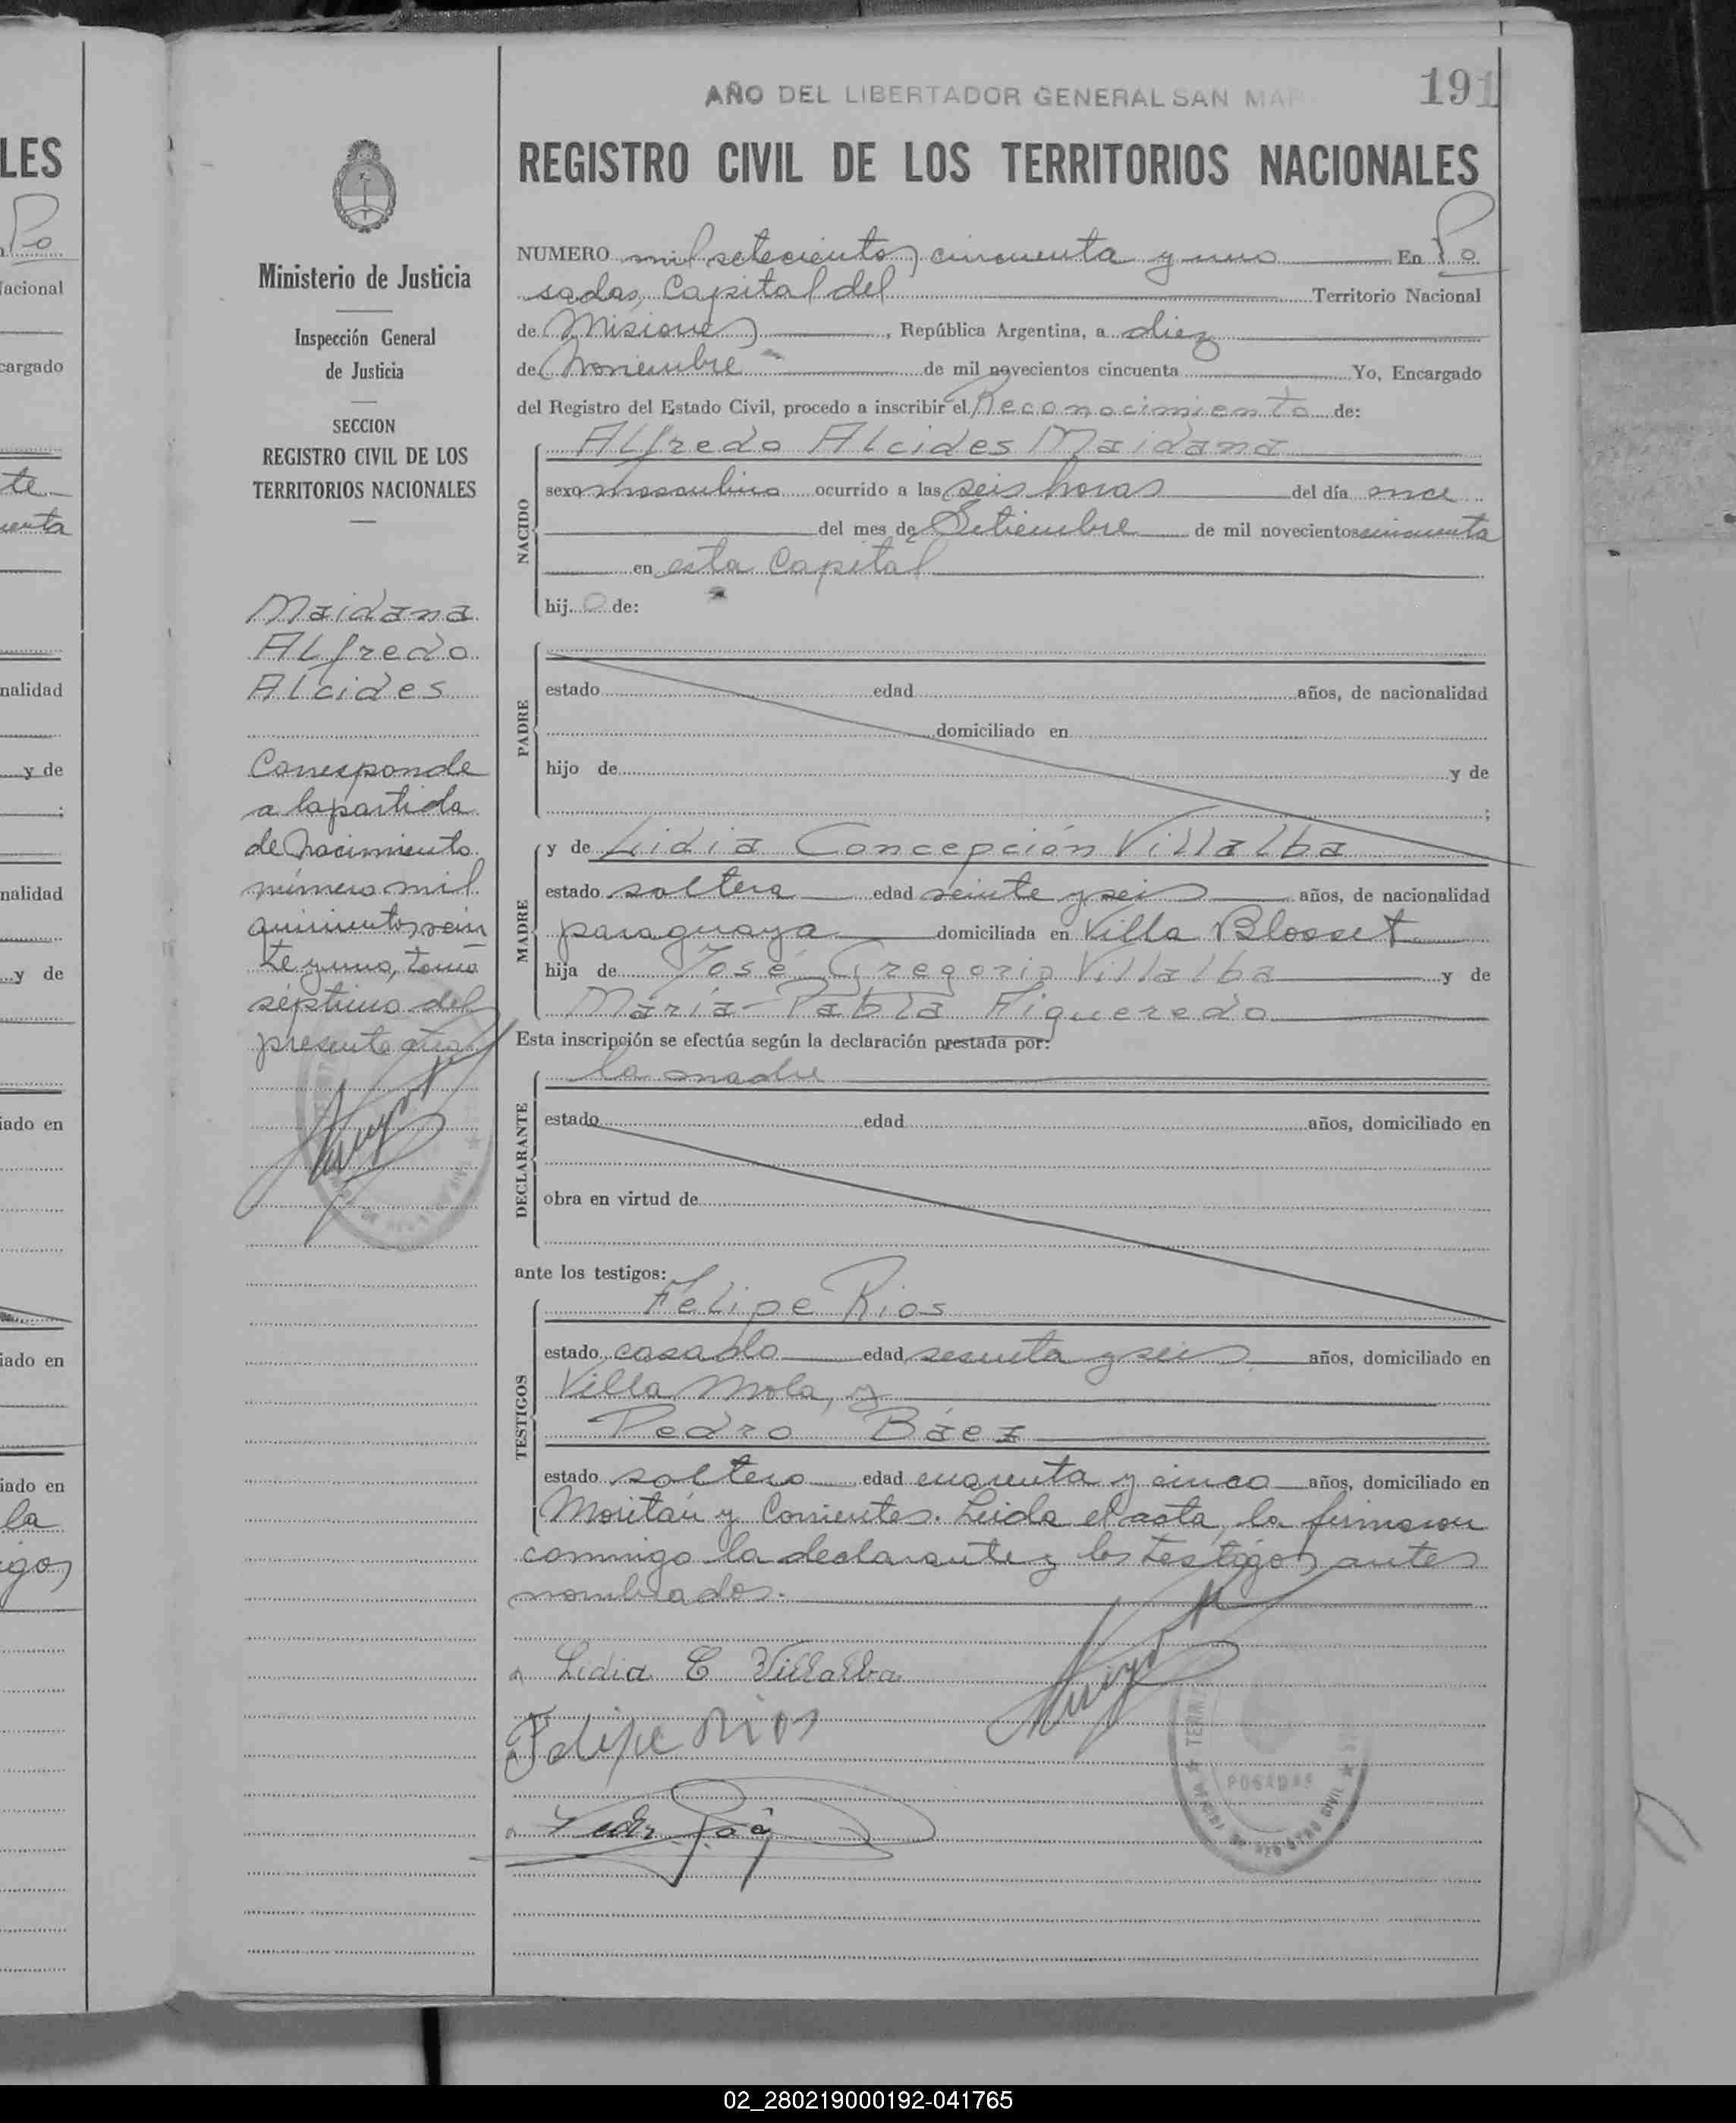 AÑO DEL LIBERTADOR GENERAL SAN MAR
191
REGISTRO CIVIL DE LOS TERRITORIOS NACIONALES
Ministerio de Justicia
Inspección General
de Justicia
SECCION
REGISTRO CIVIL DE LOS
TERRITORIOS NACIONALES
Maidana
Alfredo
Alcides
Corresponde
a la partida
de nacimiento
número mil
quinientos vein
te y uno, tomo
séptimo del
presente año
NUMERO mil setecientos cincuenta y uno En Po
sadas, Capital del Territorio Nacional
de Misiones, República Argentina, a diez
de Noviembre de mil novecientos cincuenta Yo, Encargado
del Registro del Estado Civil, procedo a inscribir el Reconocimiento de:
Alfredo Alcides Maidana
NACIDO
sexo masculino ocurrido a las seis horas del día once
del mes de Setiembre de mil novecientos cincuenta
en esta Capital
hijo de:
PADRE
estado edad años, de nacionalidad
domiciliado en
hijo de y de
;
MADRE
y de Lidia Concepción Villalba
estado soltera edad veinte y seis años, de nacionalidad
paraguaya domiciliada en Villa Blosset
hija de José Gregorio Villalba y de
María Pabla Figueredo
Esta inscripción se efectúa según la declaración prestada por:
la madre
DECLARANTE
estado edad años, domiciliado en
obra en virtud de
ante los testigos:
TESTIGOS
Felipe Rios
estado casado edad sesenta y seis años, domiciliado en
Villa Mola, y
Pedro Báez
estado soltero edad cuarenta y cinco años, domiciliado en
Moritán y Corrientes. Leida el acta, la firmaron
conmigo la declarante y los testigos antes
nombrados.
Lidia C Villalba
Felipe Rios
Pedro Báez
POSADAS
LES
Po
acional
cargado
te
enta
nalidad
y de
;
nalidad
y de
iado en
iado en
iado en
la
igos
02_280219000192-041765